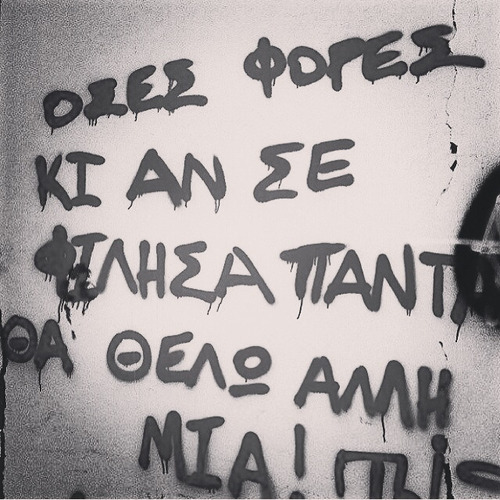 ΟΣΕΣ ΦΟΡΕΣ
ΚΙ ΑΝ ΣΕ
ΦΙΛΗΣΑ ΠΑΝΤΑ
ΘΑ ΘΕΛΩ ΑΛΛΗ
ΜΙΑ!